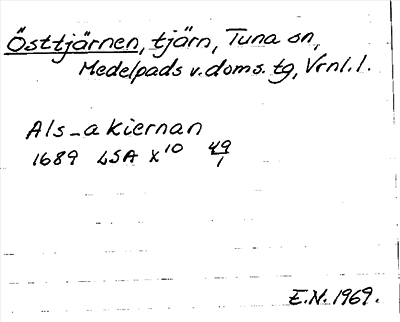 Östtjärnen, tjärn, Tuna sn,
Medelpads v. doms. tg, Vrnl. l.
Als-a kiernan
1689 LSA X10 49/1
E.N. 1969.